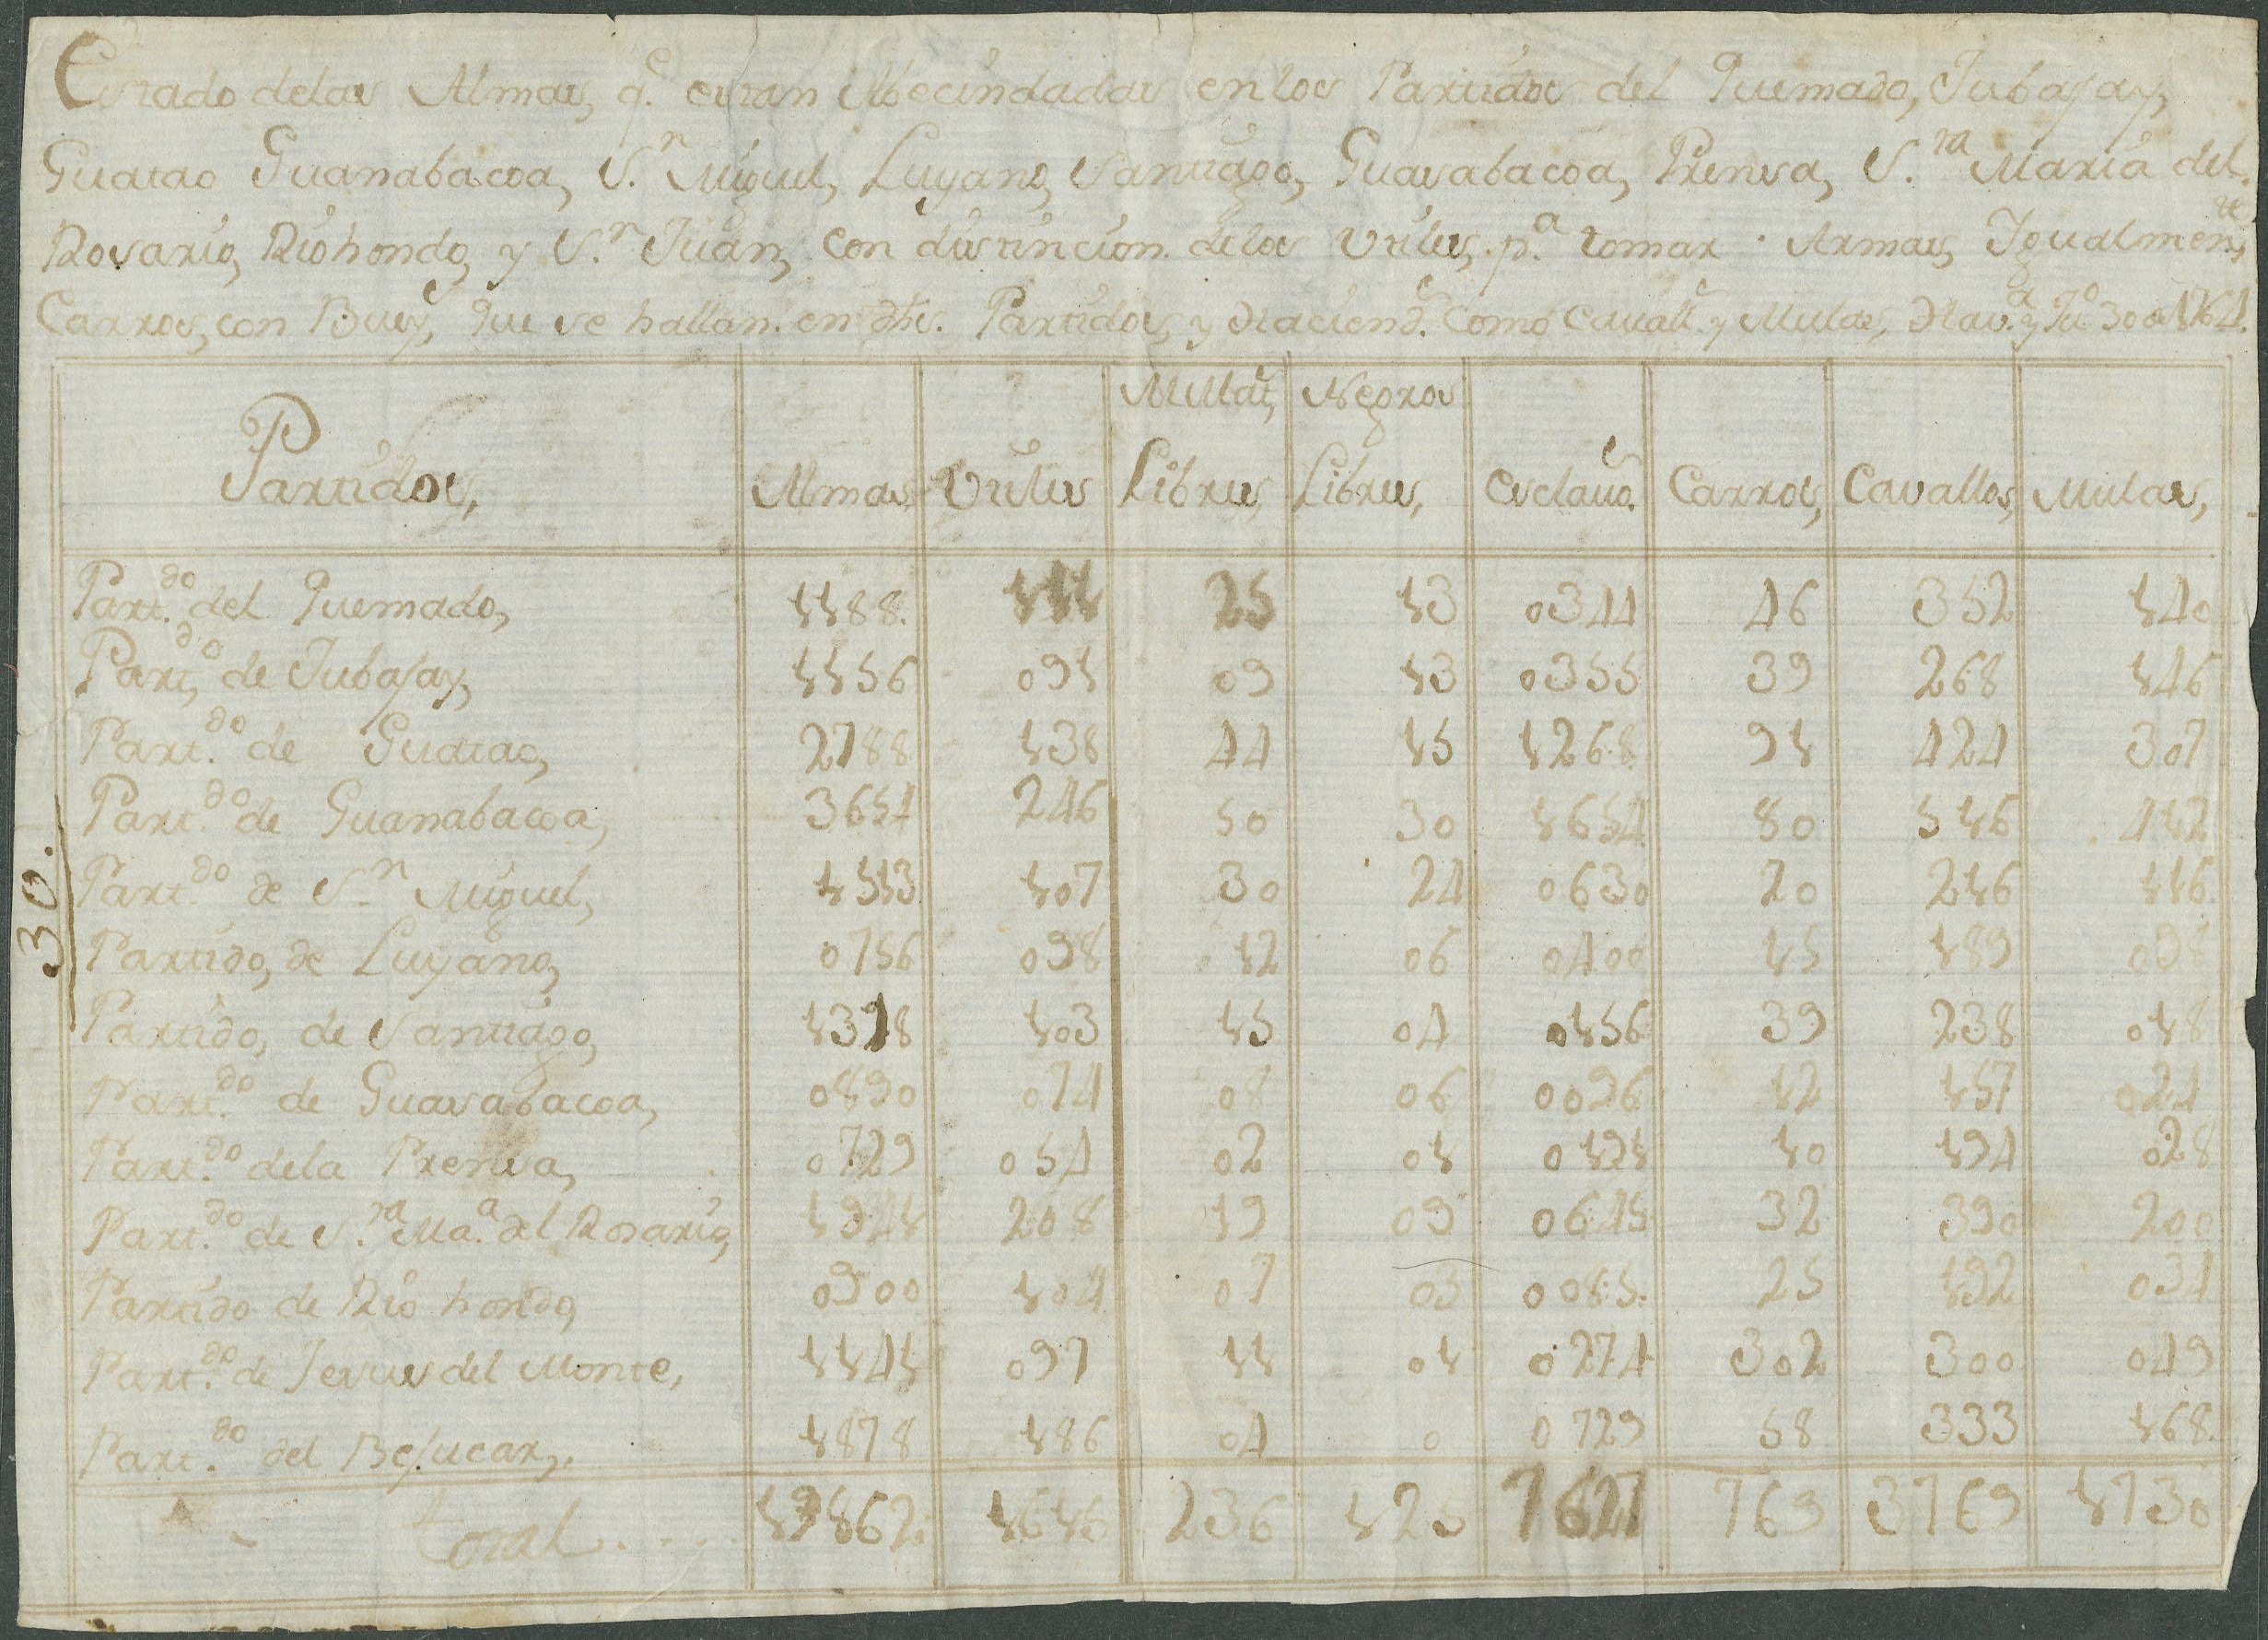 Estado delas Almas, q.e estan Abecindadas en los Partidos del Quemado, Jubajay,
Guatao Guanabacoa, S.n Miguel, Luyano, Santiago, Guasabacoa, Prensa, S.ta Maria del
Rosario, Riohondo, y S.n Juan, Con distincion delos Utiles, p.a tomar Armas, Igualmen.te
Carros, con Buey, que se hallan en dhs. Partidos, y Haciend.s Como Cavall.s y Mulas, Hav.a y Ju.o 30 de 1764.
Partidos, Almas Utiles Mulat.s Libres, Negros Libres, Esclavo.s Carros, Cavallos, Mulas,
Part.do del Quemado, 1188. 111 25 13 0344 46 352 140
Part.do de Jubajay, 1156 091 09 13 0355 39 268 146
Part.do de Guatao, 2788 138 44 15 1268 91 424 307
Part.do de Guanabacoa, 3654 246 50 30 1654 80 516 412
Part.do de S.n Miguel, 1513 107 30 24 0630 20 216 116.
Partido, de Luyano, 0756 098 12 06 0400 15 189 098
Partido, de Santiago, 1318 103 15 04 0156 39 238 018
Part.do de Guasabacoa, 0890 074 08 06 0096 12 157 024
Part.do dela Prensa, 0729 054 02 01 0191 10 194 028
Part.do de S.ta Ma.a del Rosario, 1941 208 19 09 0645 32 390 200
Partido de Rio hondo, 0900 104 07 03 0085. 25 192 034
Part.do de Jesus del Monte, 1141 097 11 01 0274 302 300 049
Part.do del Bejucar,. 1878 186 04 0 0729 58 333 168.
total . . . . 19862. 1616 236 125 7627 769 3769 1730
30.